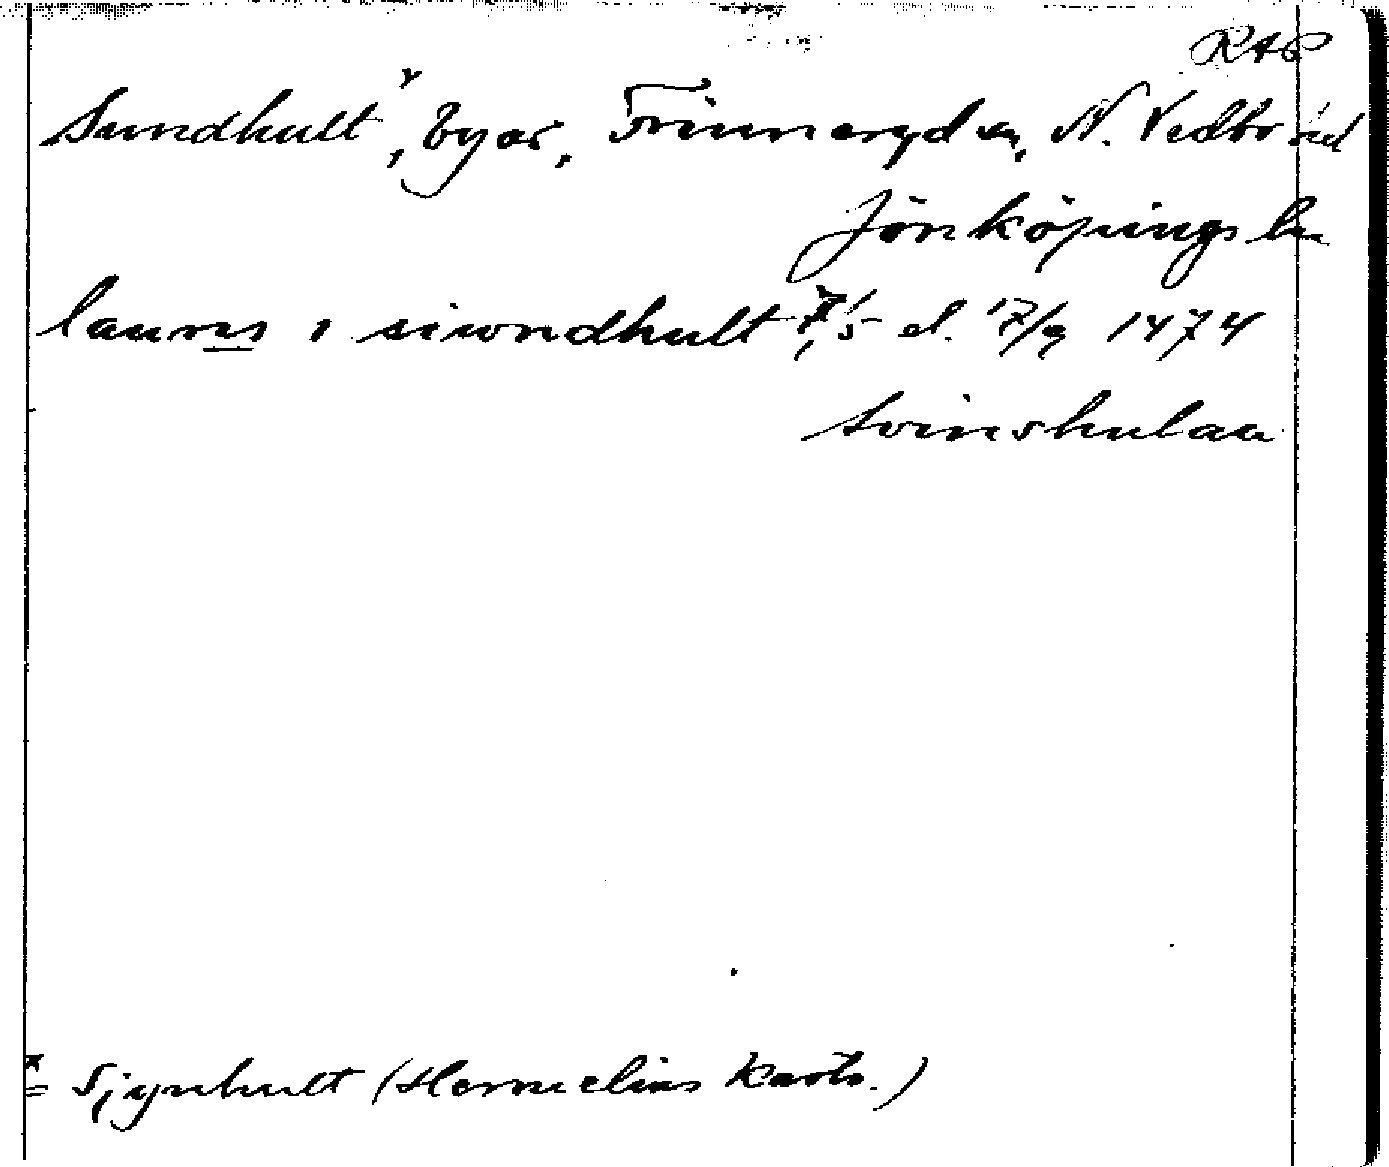 RAP
Sundhult x, byar, Frinnaryd sn, N. Vedbo hd
Jönköpings län
laurns i siwndhult, 7/5 el. 17/9 1474
Svinshulaa
x = Sjynhult (Hermelins karta.)